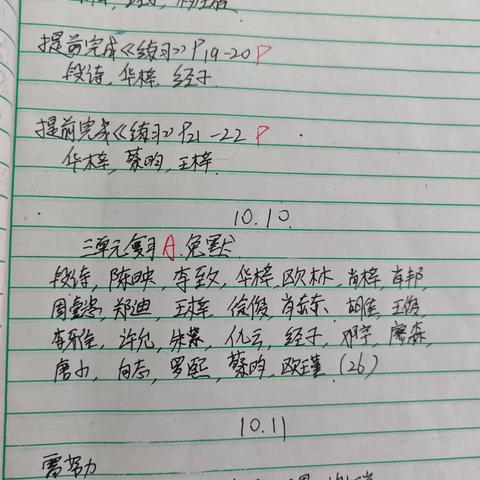 提前完成《练习》P19-20 P
段诗,华梓,经子.
提前完成《练习》P21-22 P
华梓,蔡昀,王梓.
10.10.
三单元复习A.免默
段诗,陈映,李致,华梓,欧林,肖梓,肖邦,
郑迪,王梓,徐俊,肖东,胡佳,王俊,
许允,朱紫,仇云,经子,邓宇,廖森,
唐小,向志,罗熙,蔡昀,欧瑾(26)
10.11
雷努力